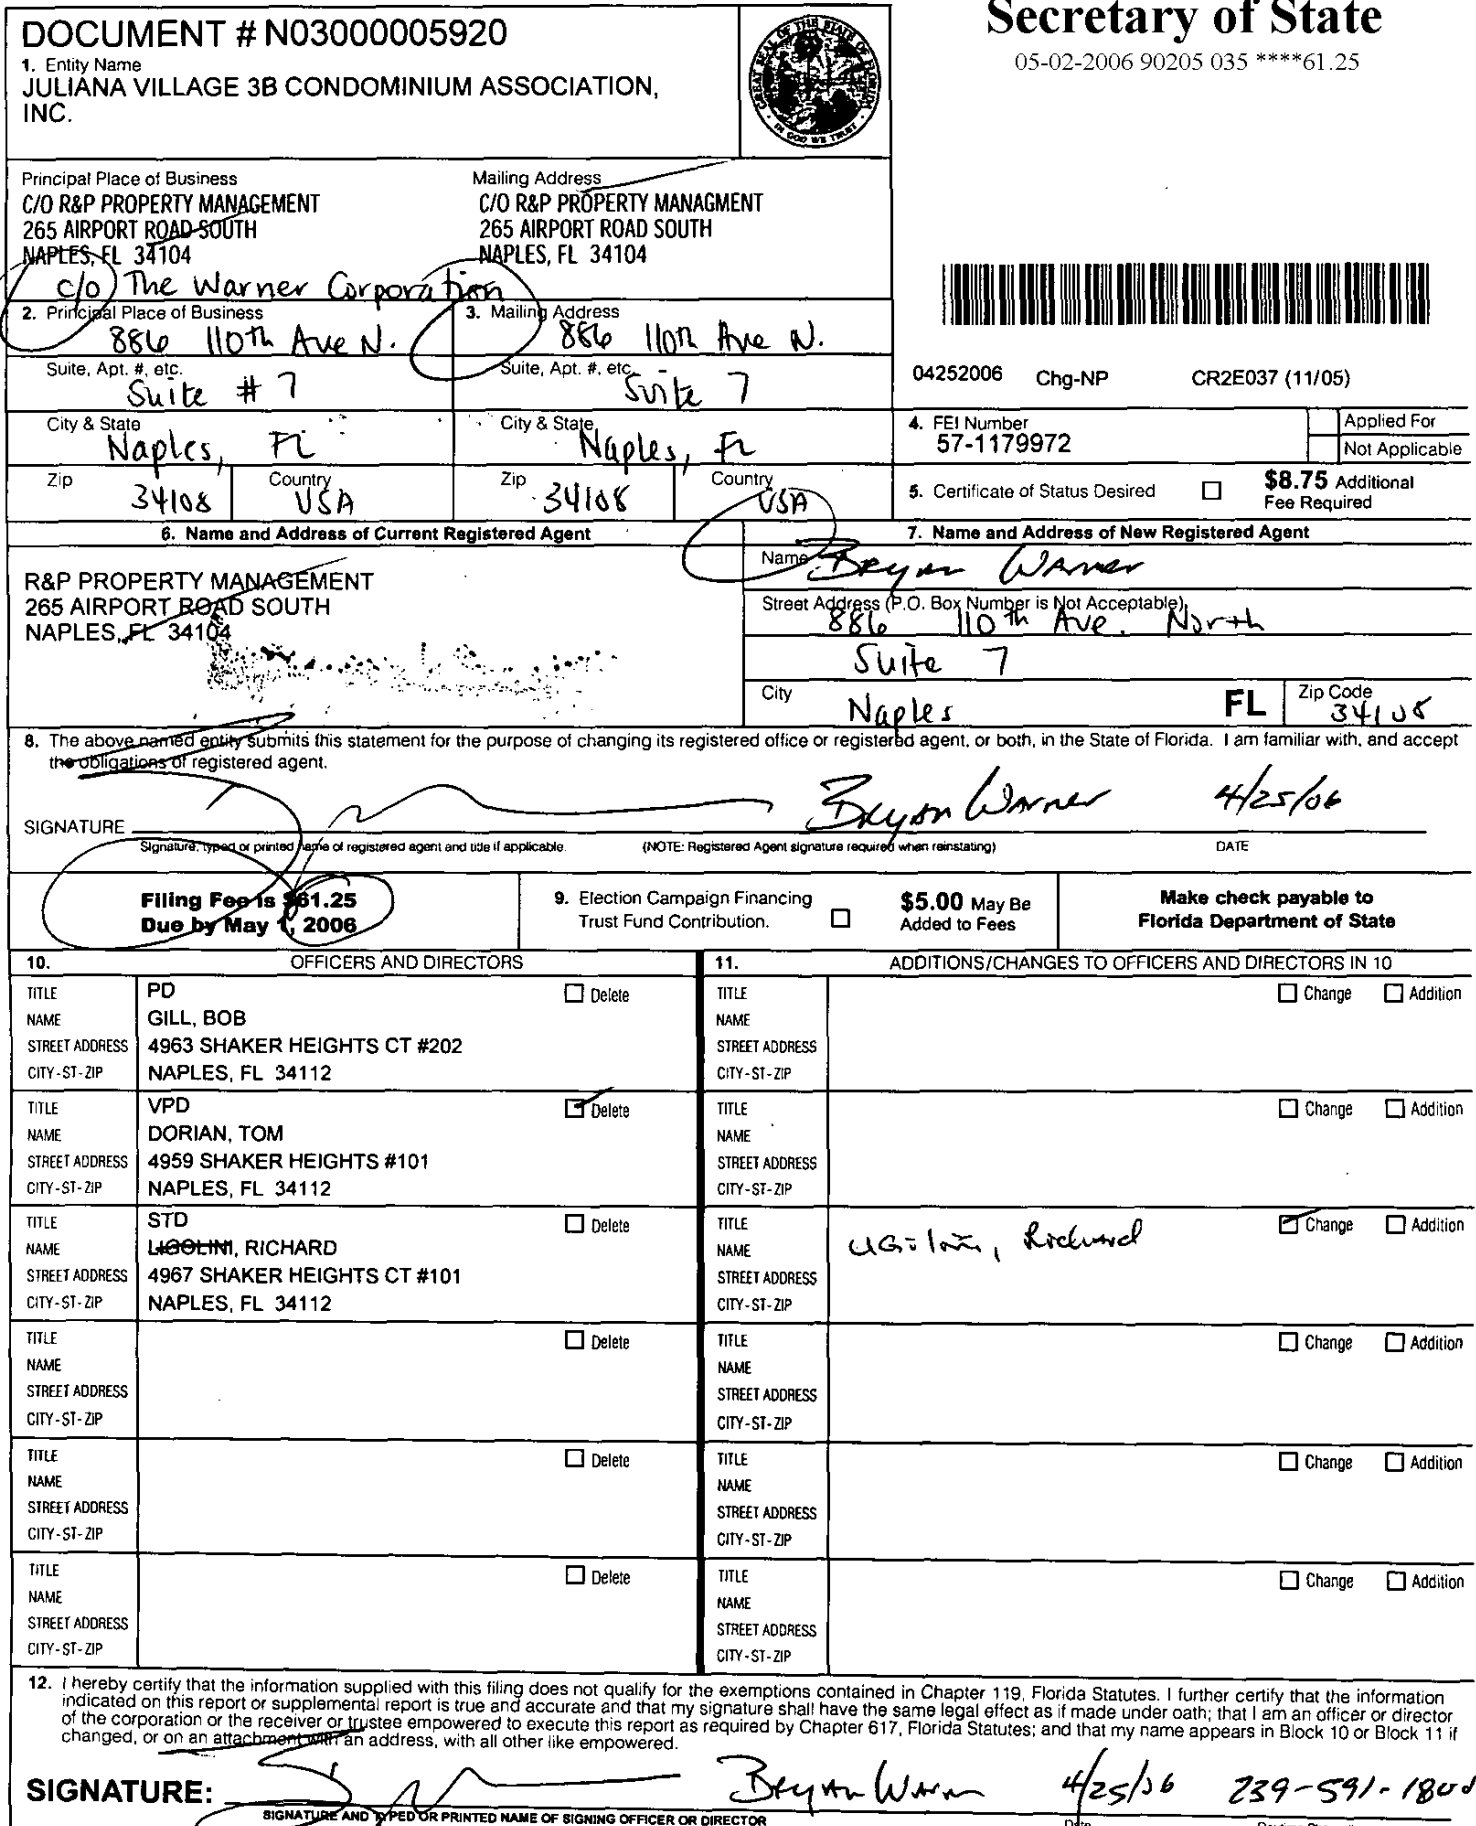 Secretary of State
05-02-2006 90205 035 ****61.25
DOCUMENT # N03000005920
1. Entity Name
JULIANA VILLAGE 3B CONDOMINIUM ASSOCIATION,
INC.
GREAT SEAL OF THE STATE OF FLORIDA
IN GOD WE TRUST
Principal Place of Business
C/O R&P PROPERTY MANAGEMENT
265 AIRPORT ROAD SOUTH
NAPLES, FL 34104
Mailing Address
C/O R&P PROPERTY MANAGMENT
265 AIRPORT ROAD SOUTH
NAPLES, FL 34104
c/o The Warner Corporation
2. Principal Place of Business
886 110th Ave N.
3. Mailing Address
886 110th Ave N.
Suite, Apt. #, etc.
Suite # 7
Suite, Apt. #, etc.
Suite 7
City & State
Naples, FL
City & State
Naples, FL
Zip
34108
Country
USA
Zip
34108
Country
USA
04252006 Chg-NP CR2E037 (11/05)
4. FEI Number
57-1179972
Applied For
Not Applicable
5. Certificate of Status Desired
$8.75 Additional
Fee Required
6. Name and Address of Current Registered Agent
R&P PROPERTY MANAGEMENT
265 AIRPORT ROAD SOUTH
NAPLES, FL 34104
7. Name and Address of New Registered Agent
Name Bryan Warner
Street Address (P.O. Box Number is Not Acceptable)
886 110th Ave. North
Suite 7
City
Naples FL
Zip Code
34108
8. The above named entity submits this statement for the purpose of changing its registered office or registered agent, or both, in the State of Florida. I am familiar with, and accept
the obligations of registered agent.
SIGNATURE Bryan Warner 4/25/06
Signature, typed or printed name of registered agent and title if applicable. (NOTE: Registered Agent signature required when reinstating) DATE
Filing Fee is $61.25
Due by May 1, 2006
9. Election Campaign Financing
Trust Fund Contribution.
$5.00 May Be
Added to Fees
Make check payable to
Florida Department of State
10. OFFICERS AND DIRECTORS
11. ADDITIONS/CHANGES TO OFFICERS AND DIRECTORS IN 10
TITLE PD Delete
NAME GILL, BOB
STREET ADDRESS 4963 SHAKER HEIGHTS CT #202
CITY-ST-ZIP NAPLES, FL 34112
TITLE Change Addition
NAME
STREET ADDRESS
CITY-ST-ZIP
TITLE VPD Delete
NAME DORIAN, TOM
STREET ADDRESS 4959 SHAKER HEIGHTS #101
CITY-ST-ZIP NAPLES, FL 34112
TITLE Change Addition
NAME
STREET ADDRESS
CITY-ST-ZIP
TITLE STD Delete
NAME LIGOLINI, RICHARD
STREET ADDRESS 4967 SHAKER HEIGHTS CT #101
CITY-ST-ZIP NAPLES, FL 34112
TITLE Change Addition
NAME UGolini, Richard
STREET ADDRESS
CITY-ST-ZIP
TITLE Delete
NAME
STREET ADDRESS
CITY-ST-ZIP
TITLE Change Addition
NAME
STREET ADDRESS
CITY-ST-ZIP
TITLE Delete
NAME
STREET ADDRESS
CITY-ST-ZIP
TITLE Change Addition
NAME
STREET ADDRESS
CITY-ST-ZIP
TITLE Delete
NAME
STREET ADDRESS
CITY-ST-ZIP
TITLE Change Addition
NAME
STREET ADDRESS
CITY-ST-ZIP
12. I hereby certify that the information supplied with this filing does not qualify for the exemptions contained in Chapter 119, Florida Statutes. I further certify that the information
indicated on this report or supplemental report is true and accurate and that my signature shall have the same legal effect as if made under oath; that I am an officer or director
of the corporation or the receiver or trustee empowered to execute this report as required by Chapter 617, Florida Statutes; and that my name appears in Block 10 or Block 11 if
changed, or on an attachment with an address, with all other like empowered.
SIGNATURE: Bryan Warner 4/25/06 239-591-1800
SIGNATURE AND TYPED OR PRINTED NAME OF SIGNING OFFICER OR DIRECTOR Date